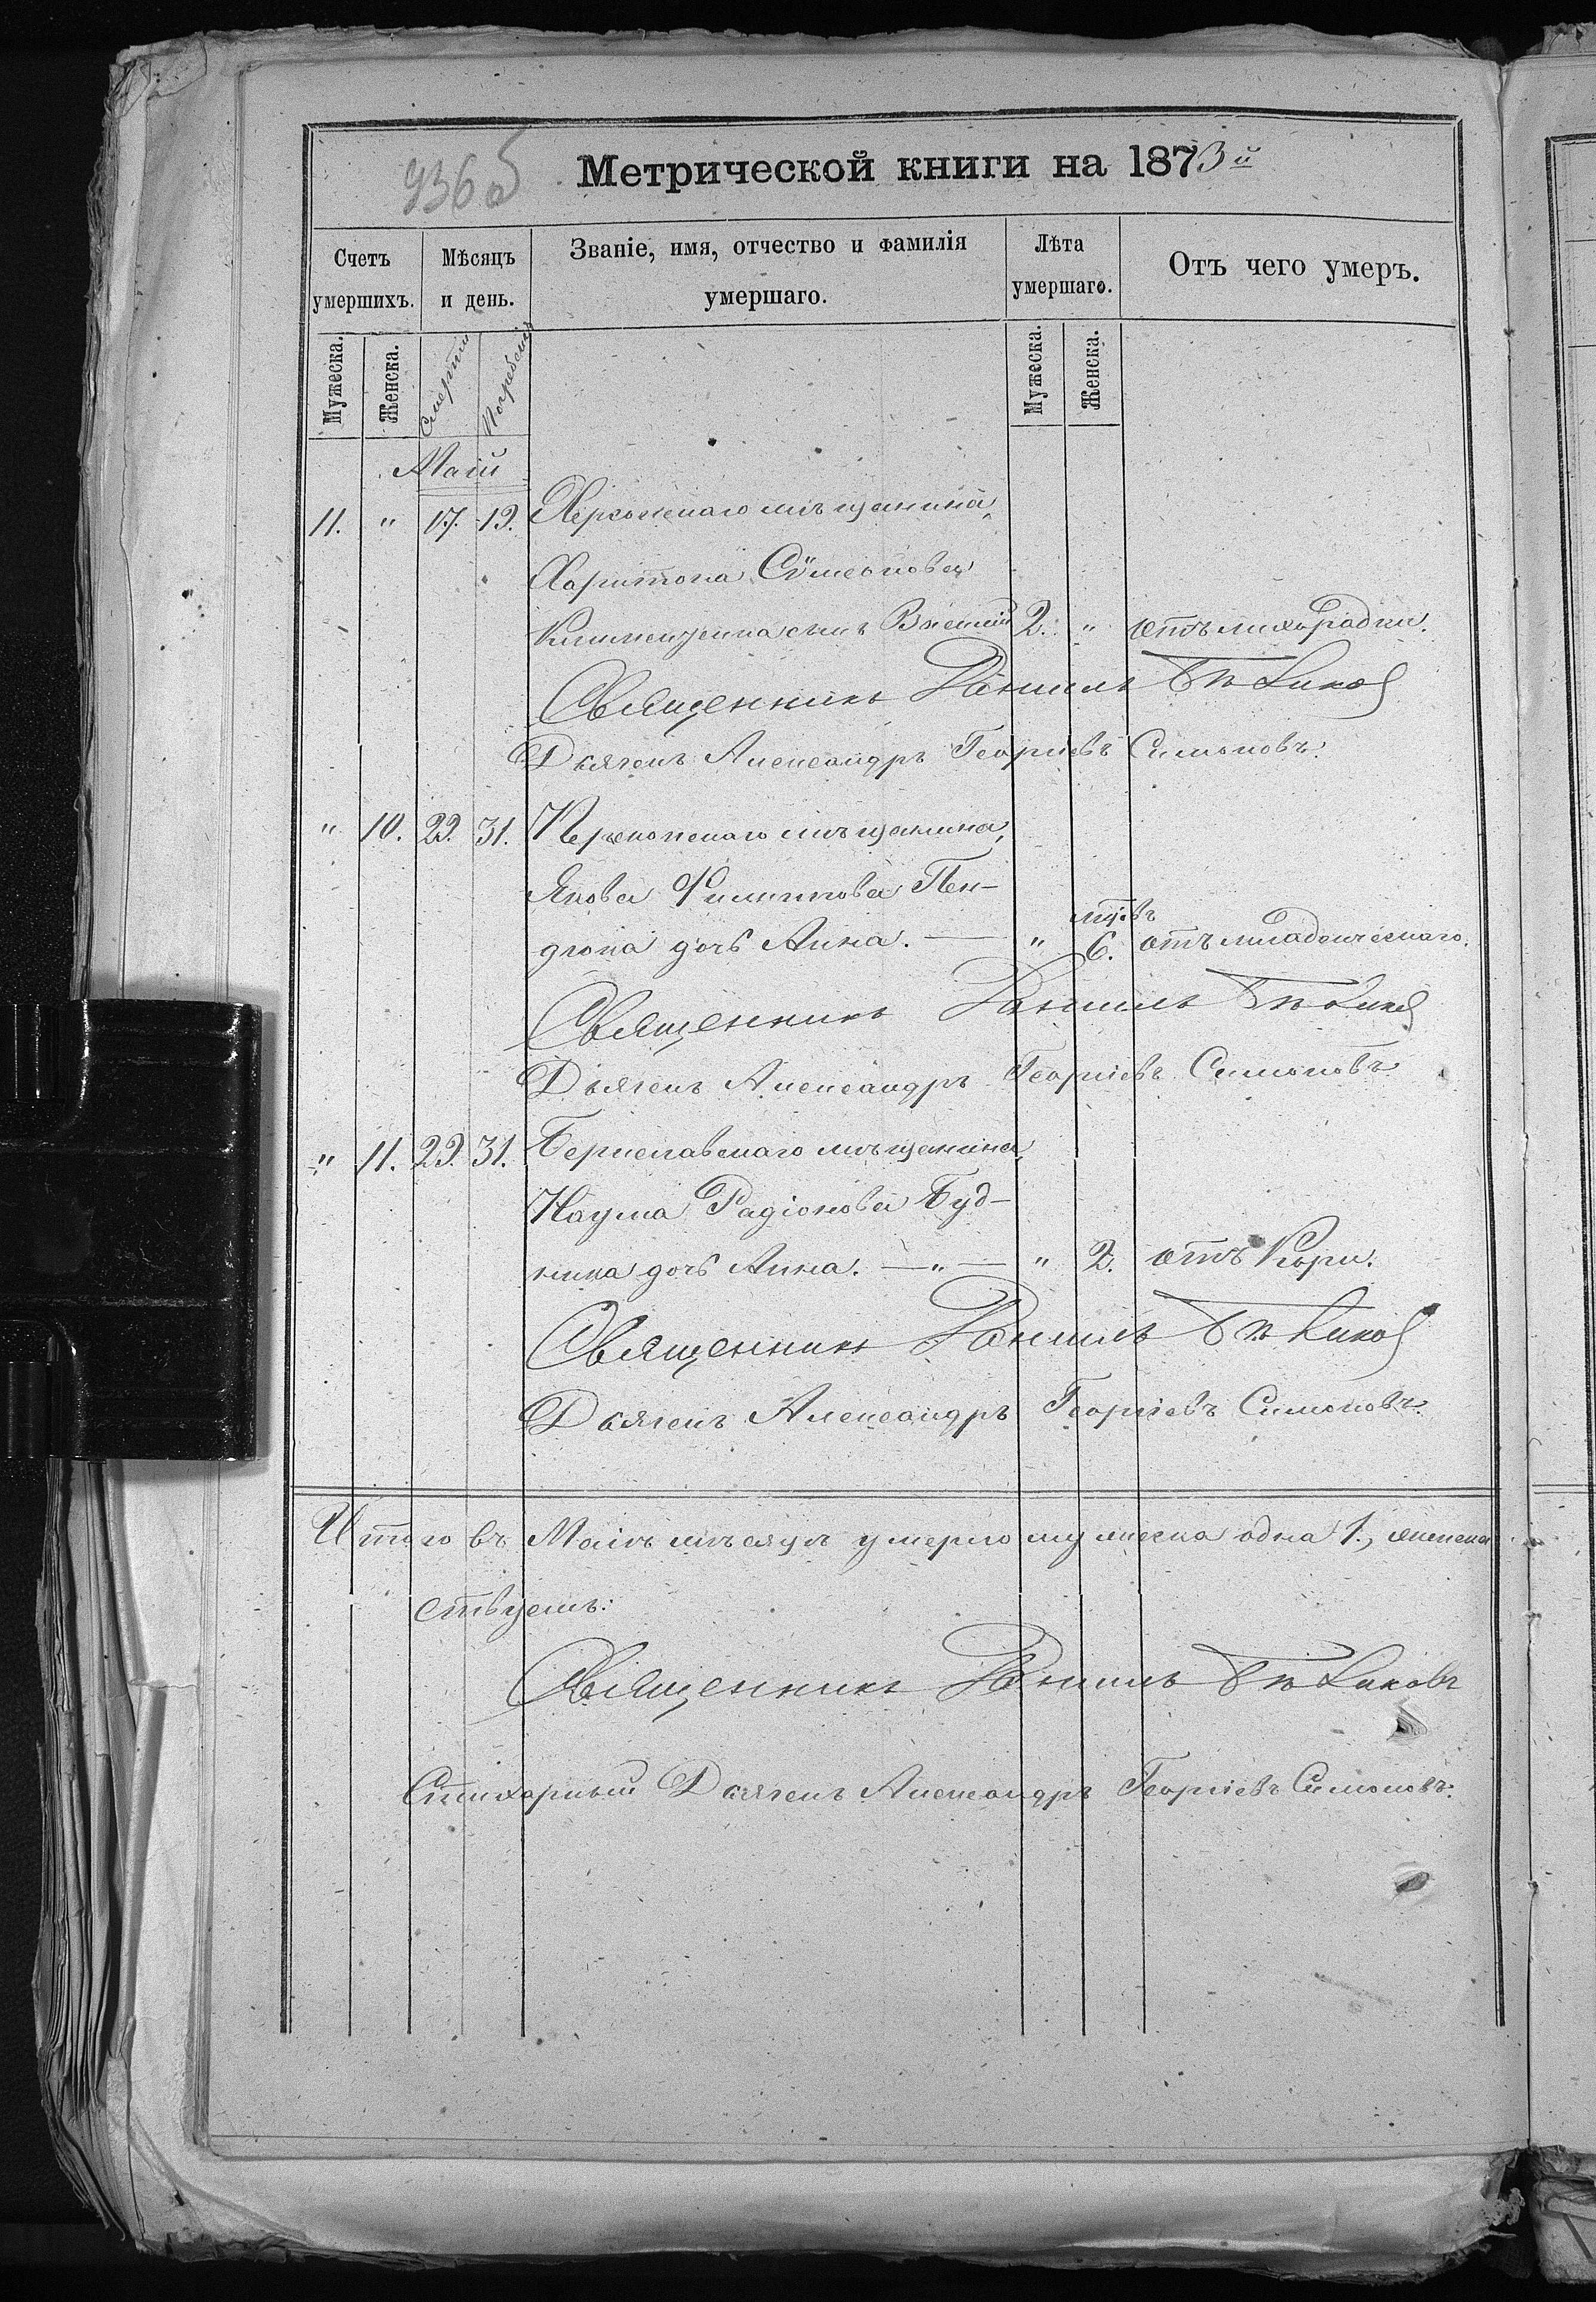 936об
Метрической книги на 1873й
Счетъ умершихъ. Мѣсяцъ и день. Званіе, имя, отчество и фамилія умершаго. Лѣта умершаго. Отъ чего умеръ.
Мужеска. Женска. Смерти Погребенія Мужеска. Женска.
Маій
11. " 17. 19. Херсонскаго мѣщанина,
Харитона Сѵмеонова
сынъ 2. " отъ лихорадки.
Священникъ Даніилъ
Дьячекъ Александръ Георгіевъ Симоновъ.
" 10. 29. 31. Перекопскаго мѣщанина,
Якова Филиппова Пен-
дюка дочь Анна. — " мцовъ 6. отъ младенческаго.
Священникъ Даніилъ
Дьячекъ Александръ Георгіевъ Симоновъ
" 11. 29. 31. Бериславскаго мѣщанина,
Наума Радіонова Буд-
ника дочь Анна. —"— " 2. отъ Кори.
Священникъ Даніилъ
Дьячекъ Александръ Георгіевъ Симоновъ.
Итого въ Маіѣ мѣсяцѣ умерло мужеска одна 1., женска
ствуемъ:
Священникъ Даніилъ
Стихарный Дьячекъ Александръ Георгіевъ Симоновъ.